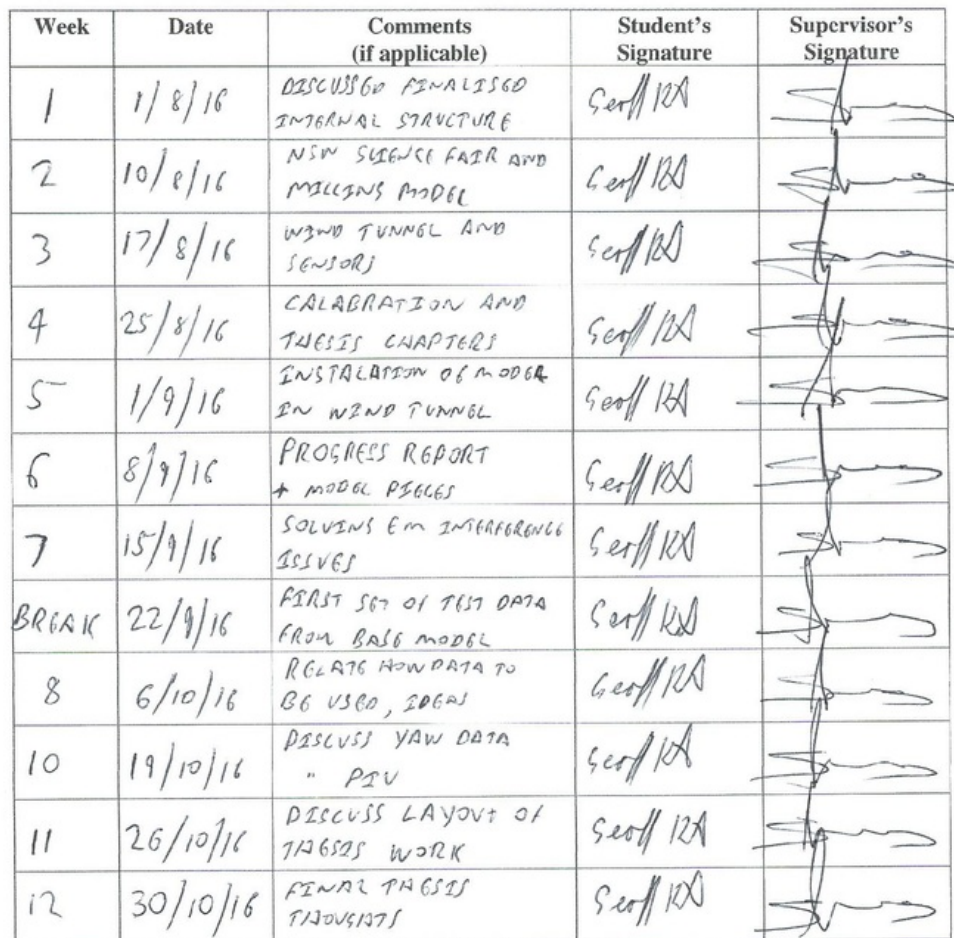 Week Date Comments Student's Supervisor's
(if applicable) Signature Signature
1 1/8/16 DISCUSSED FINALISED
INTERNAL STRUCTURE
2 10/8/16 NSW SCIENCE FAIR AND
MILLING MODEL
3 17/8/16 WIND TUNNEL AND
SENSORS
4 25/8/16 CALABRATION AND
THESIS CHAPTERS
5 1/9/16 INSTALATION OF MODEL
IN WIND TUNNEL
6 8/9/16 PROGRESS REPORT
+ MODEL PIECES
7 15/9/16 SOLVING EM INTERFERENCE
ISSUES
BREAK 22/9/16 FIRST SET OF TEST DATA
FROM BASE MODEL
8 6/10/16 RELATE HOW DATA TO
BE USED, IDEAS
10 19/10/16 DISCUSS YAW DATA
" PIV
11 26/10/16 DISCUSS LAYOUT OF
THESIS WORK
12 30/10/16 FINAL THESIS
THOUGHTS